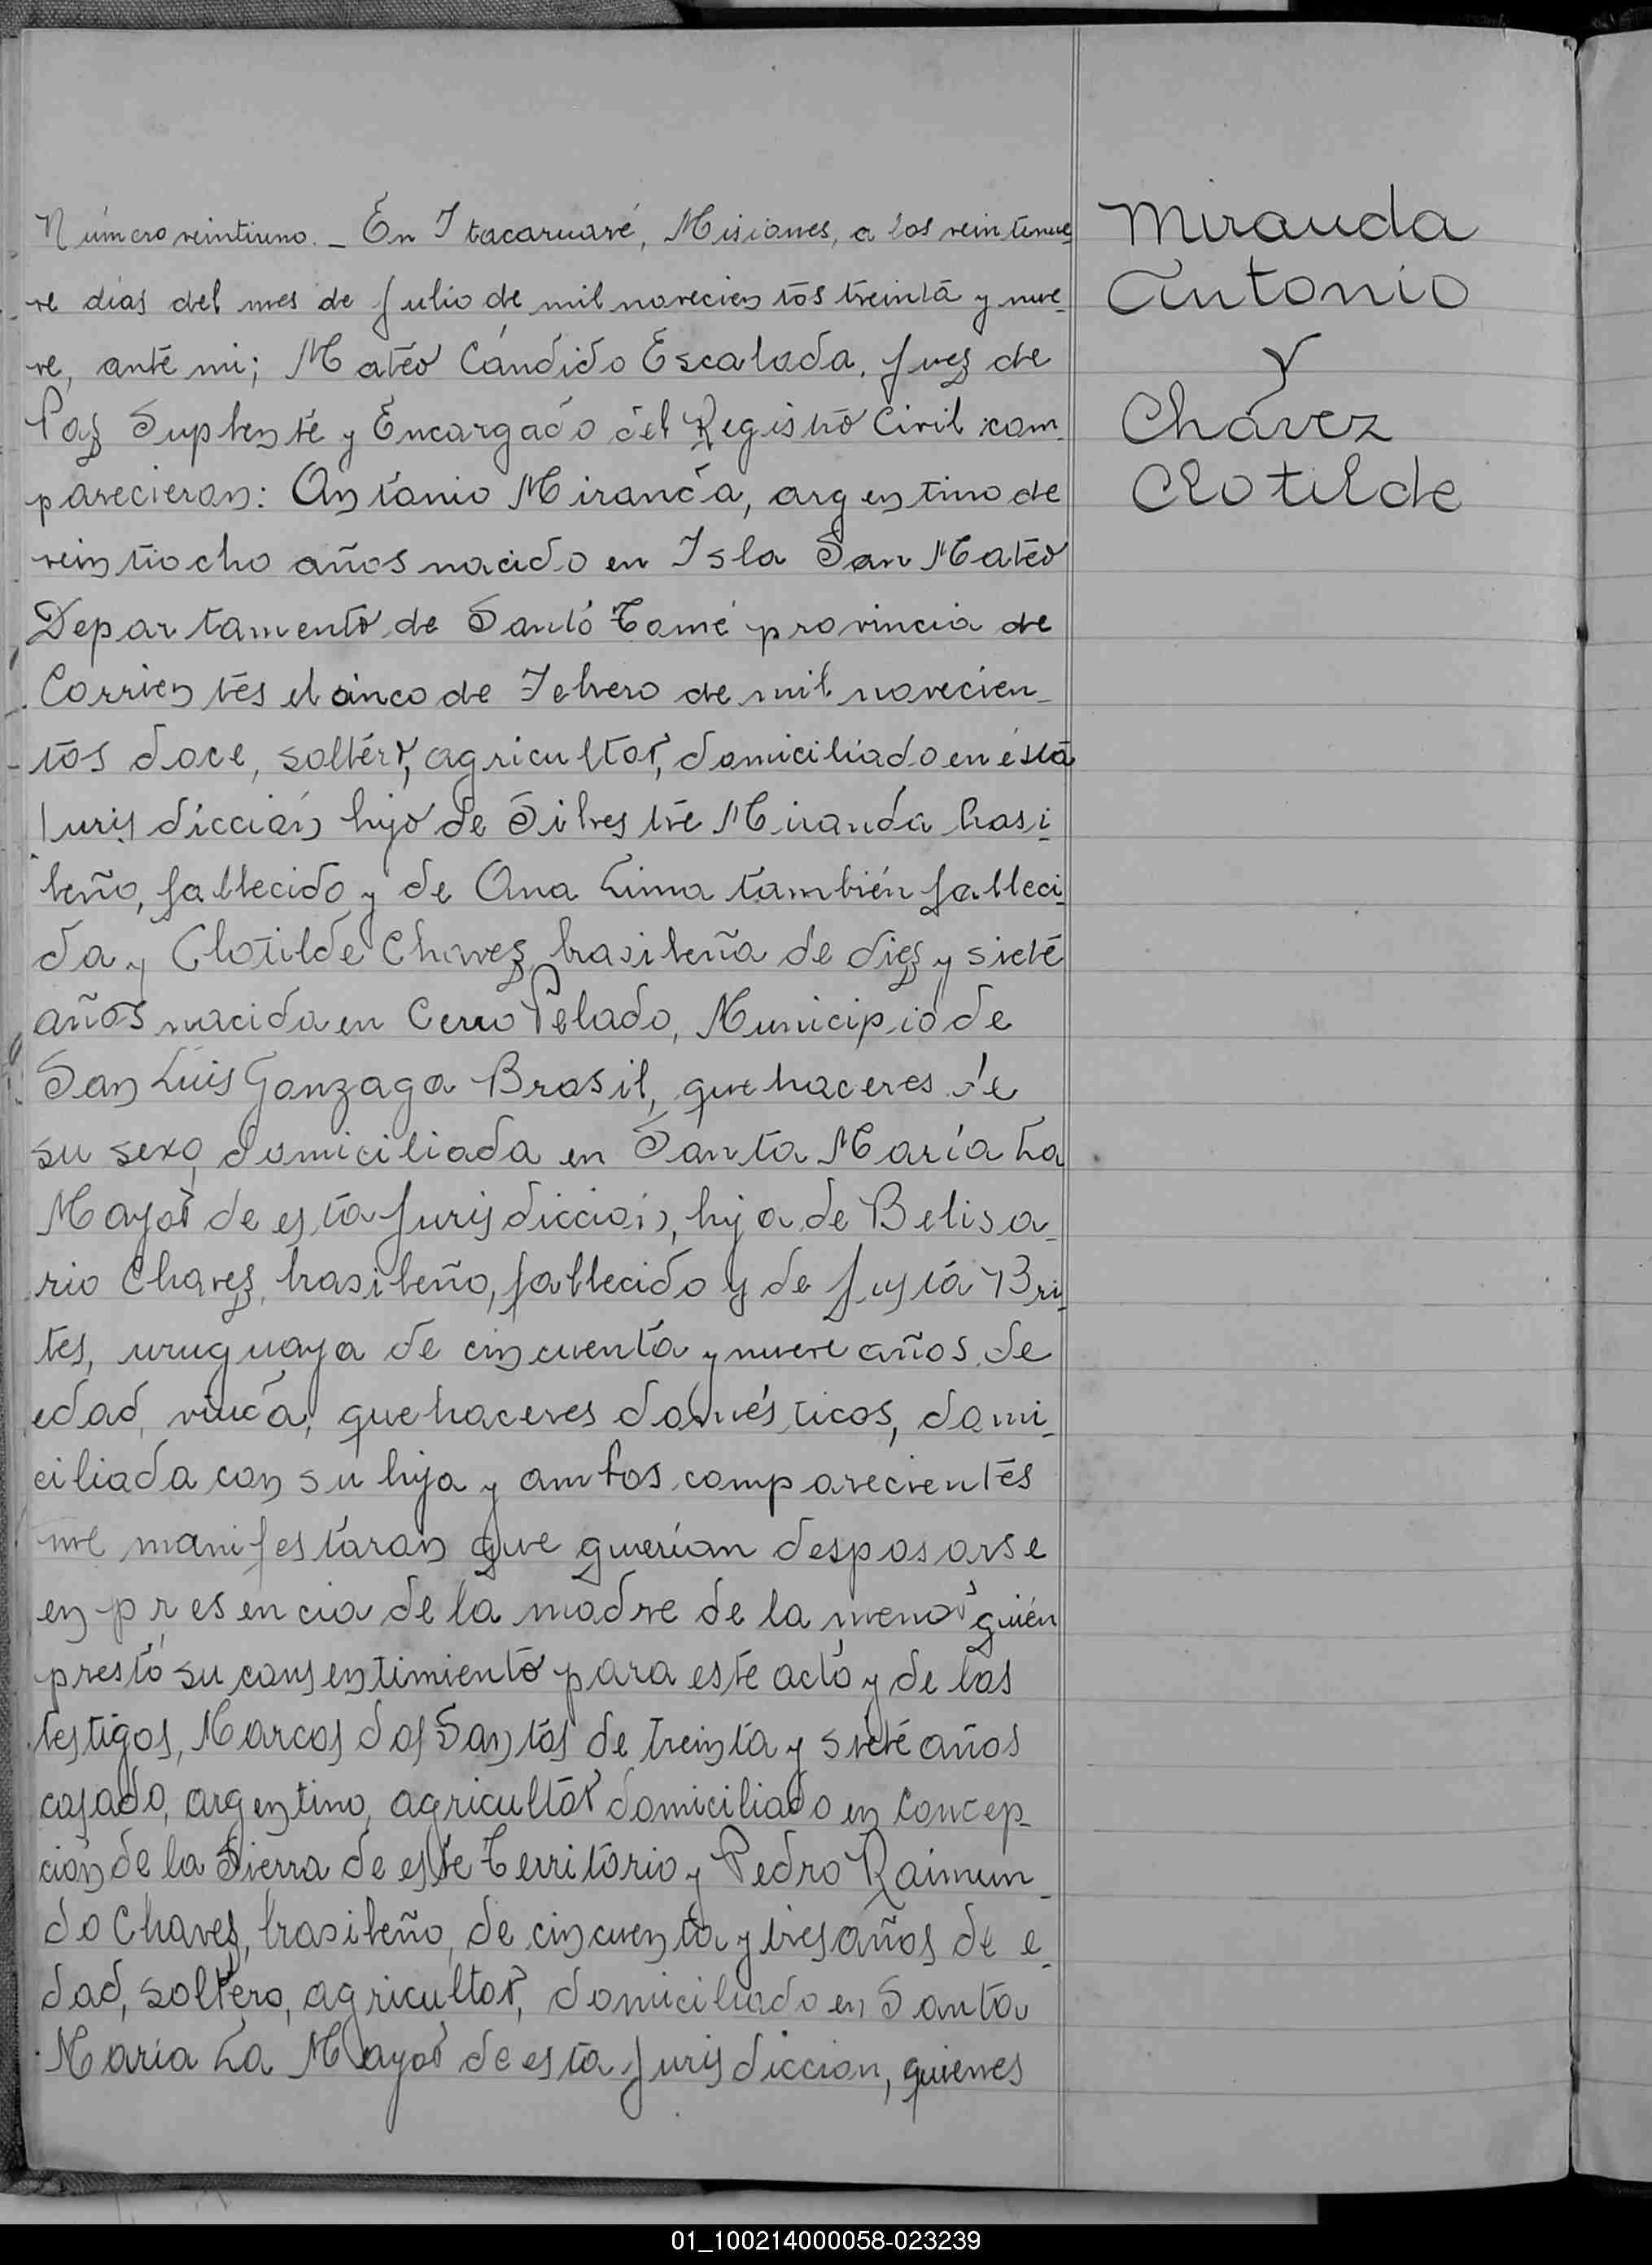 Número veintiuno._ En Itacaruaré, Misiones, a los veintinue-
ve días del mes de Julio de mil novecientos treinta y nue-
ve, ante mi; Mateo Cándido Escalada, Juez de
Paz Suplente y Encargado del Registro Civil com-
parecieron: Antonio Miranda, argentino de
veintiocho años nacido en Isla San Mateo
Departamento de Santo Tomé provincia de
Corrientes el cinco de Febrero de mil novecien-
tos doce, soltero, agricultor, domiciliado en ésta
Jurisdicción hijo de Silvestre Miranda brasi-
leño, fallecido y de Ana Lima también falleci-
da y Clotilde Chavez, brasileña de diez y siete
años nacida en Cerro Pelado, Municipio de
San Luis Gonzaga Brasil, quehaceres de
su sexo, domiciliada en Santa María La
Mayor de esta Jurisdicción, hija de Belisa-
rio Chavez, brasileño, fallecido y de Justa Bri-
tes, uruguaya de cincuenta y nueve años de
edad, viuda, quehaceres domésticos, domi-
ciliada con su hija y ambos comparecientes
me manifestaron que querían desposarse
en presencia de la madre de la menor quién
prestó su consentimiento para este acto y de los
testigos, Marcos dos Santos de treinta y siete años
casado, argentino, agricultor domiciliado en Concep-
ción de la Sierra de este Territorio y Pedro Raimun-
do Chavez, brasileño, de cincuenta y tres años de e-
dad, soltero, agricultor, domiciliado en Santa
María La Mayor de esta Jurisdiccion, quienes
Miranda
Antonio
y
Chávez
Clotilde
01_100214000058-023239